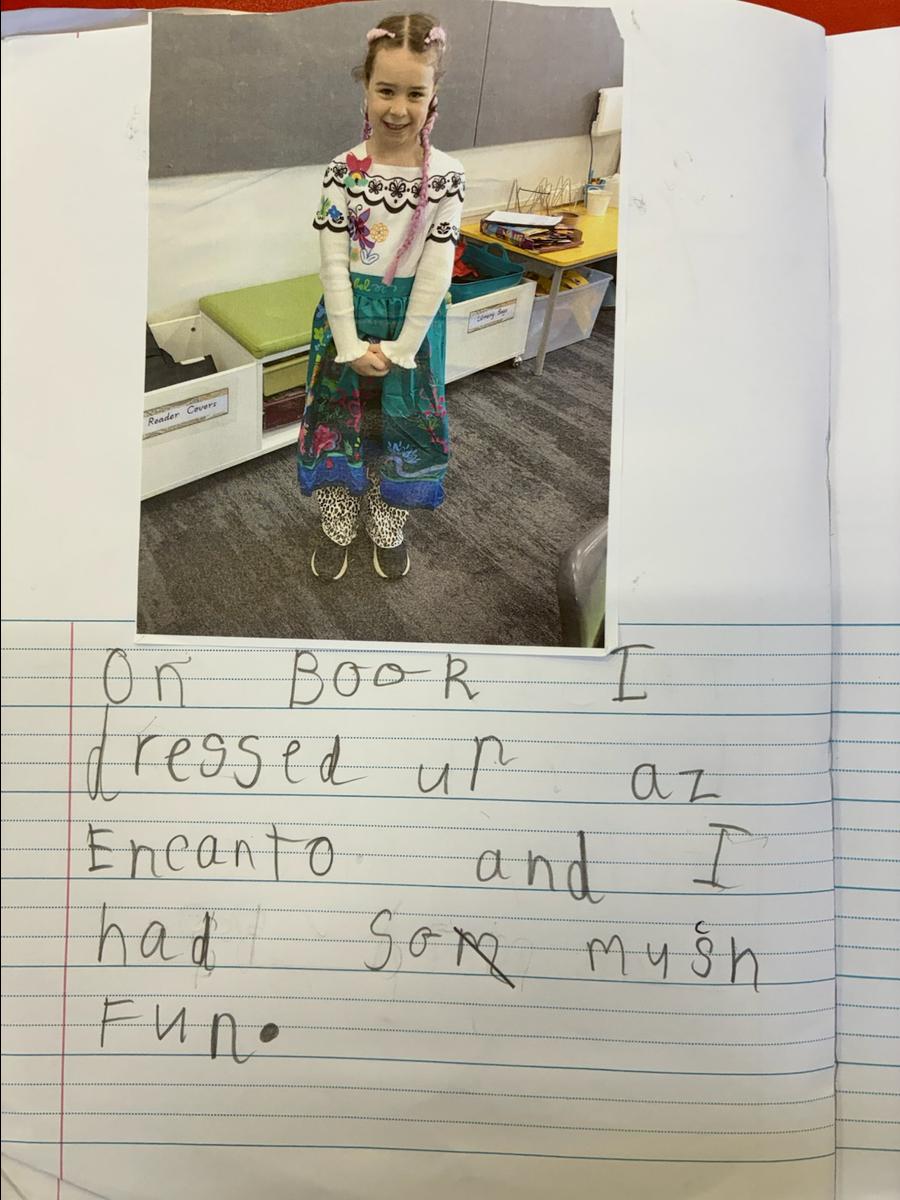 Reader Covers
Library Bags
On Book I
dressed up az
Encanto and I
had so mush
Fun.